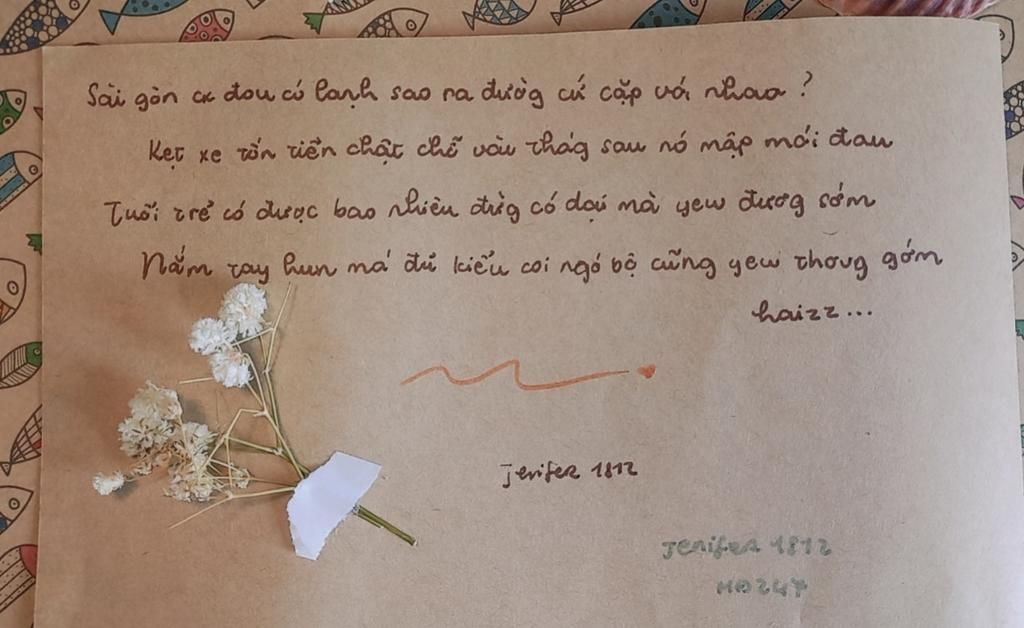 Sài gòn cx đou có lanh sao ra đườg cứ cặp với nhao ?
Kẹt xe tốn tiền chật chỗ vài thág sau nó mập mới đau
Tuổi trẻ có được bao nhiêu đừg có dại mà yew đươg sớm
Nắm tay hun má đủ kiểu coi ngó bộ cũng yew thoug gớm
haizz...
Jenifer 1812
Jenifer 1812
MĐ247